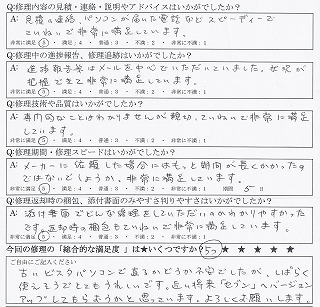 Q:修理内容の見積・連絡・説明やアドバイスはいかがでしたか？
A: 見積の連絡、パソコンが届いた電話などスピーディーで
ていねいで非常に満足しています。
非常に満足 5 ・満足：4 ・普通：3 ・不満：2 ・非常に不満：1
Q:修理中の進捗報告、修理追跡はいかがでしたか？
A: 進捗報告等はメールを中心でいただいていました。状況が
把握できて非常に満足しています。
非常に満足 5 ・満足：4 ・普通：3 ・不満：2 ・非常に不満：1
Q:修理技術や品質はいかがでしたか？
A: 専門的なことはわかりませんが親切、ていねいで非常に満足
しています。
非常に満足 5 ・満足：4 ・普通：3 ・不満：2 ・非常に不満：1
Q:修理期間・修理スピードはいかがでしたか？
A: メーカーに依頼した場合にはもっと期間が長くかかったの
ではないでしょうか。非常に満足しています。
非常に満足 5 ・満足：4 ・普通：3 ・不満：2 ・非常に不満：1 期間 5 日
Q:修理返却時の梱包、添付書面のみやすさ判りやすさはいかがでしたか？
A: 添付書面でどんな修理をしていただいたのかわかりやすかった
です。返却時の梱包もていねいで非常に満足しています。
非常に満足 5 ・満足：4 ・普通：3 ・不満：2 ・非常に不満：1
今回の修理の「総合的な満足度」は★いくつですか？ 5 ★ ★ ★ ★ ★
ご自由にご記入ください
古いビスタパソコンで直るかどうか不安でしたが、しばらく
使えそうでとてもうれしいです。近い将来"セブン"へバージョン
アップしてもらおうかと思っています。よろしくお願いします。